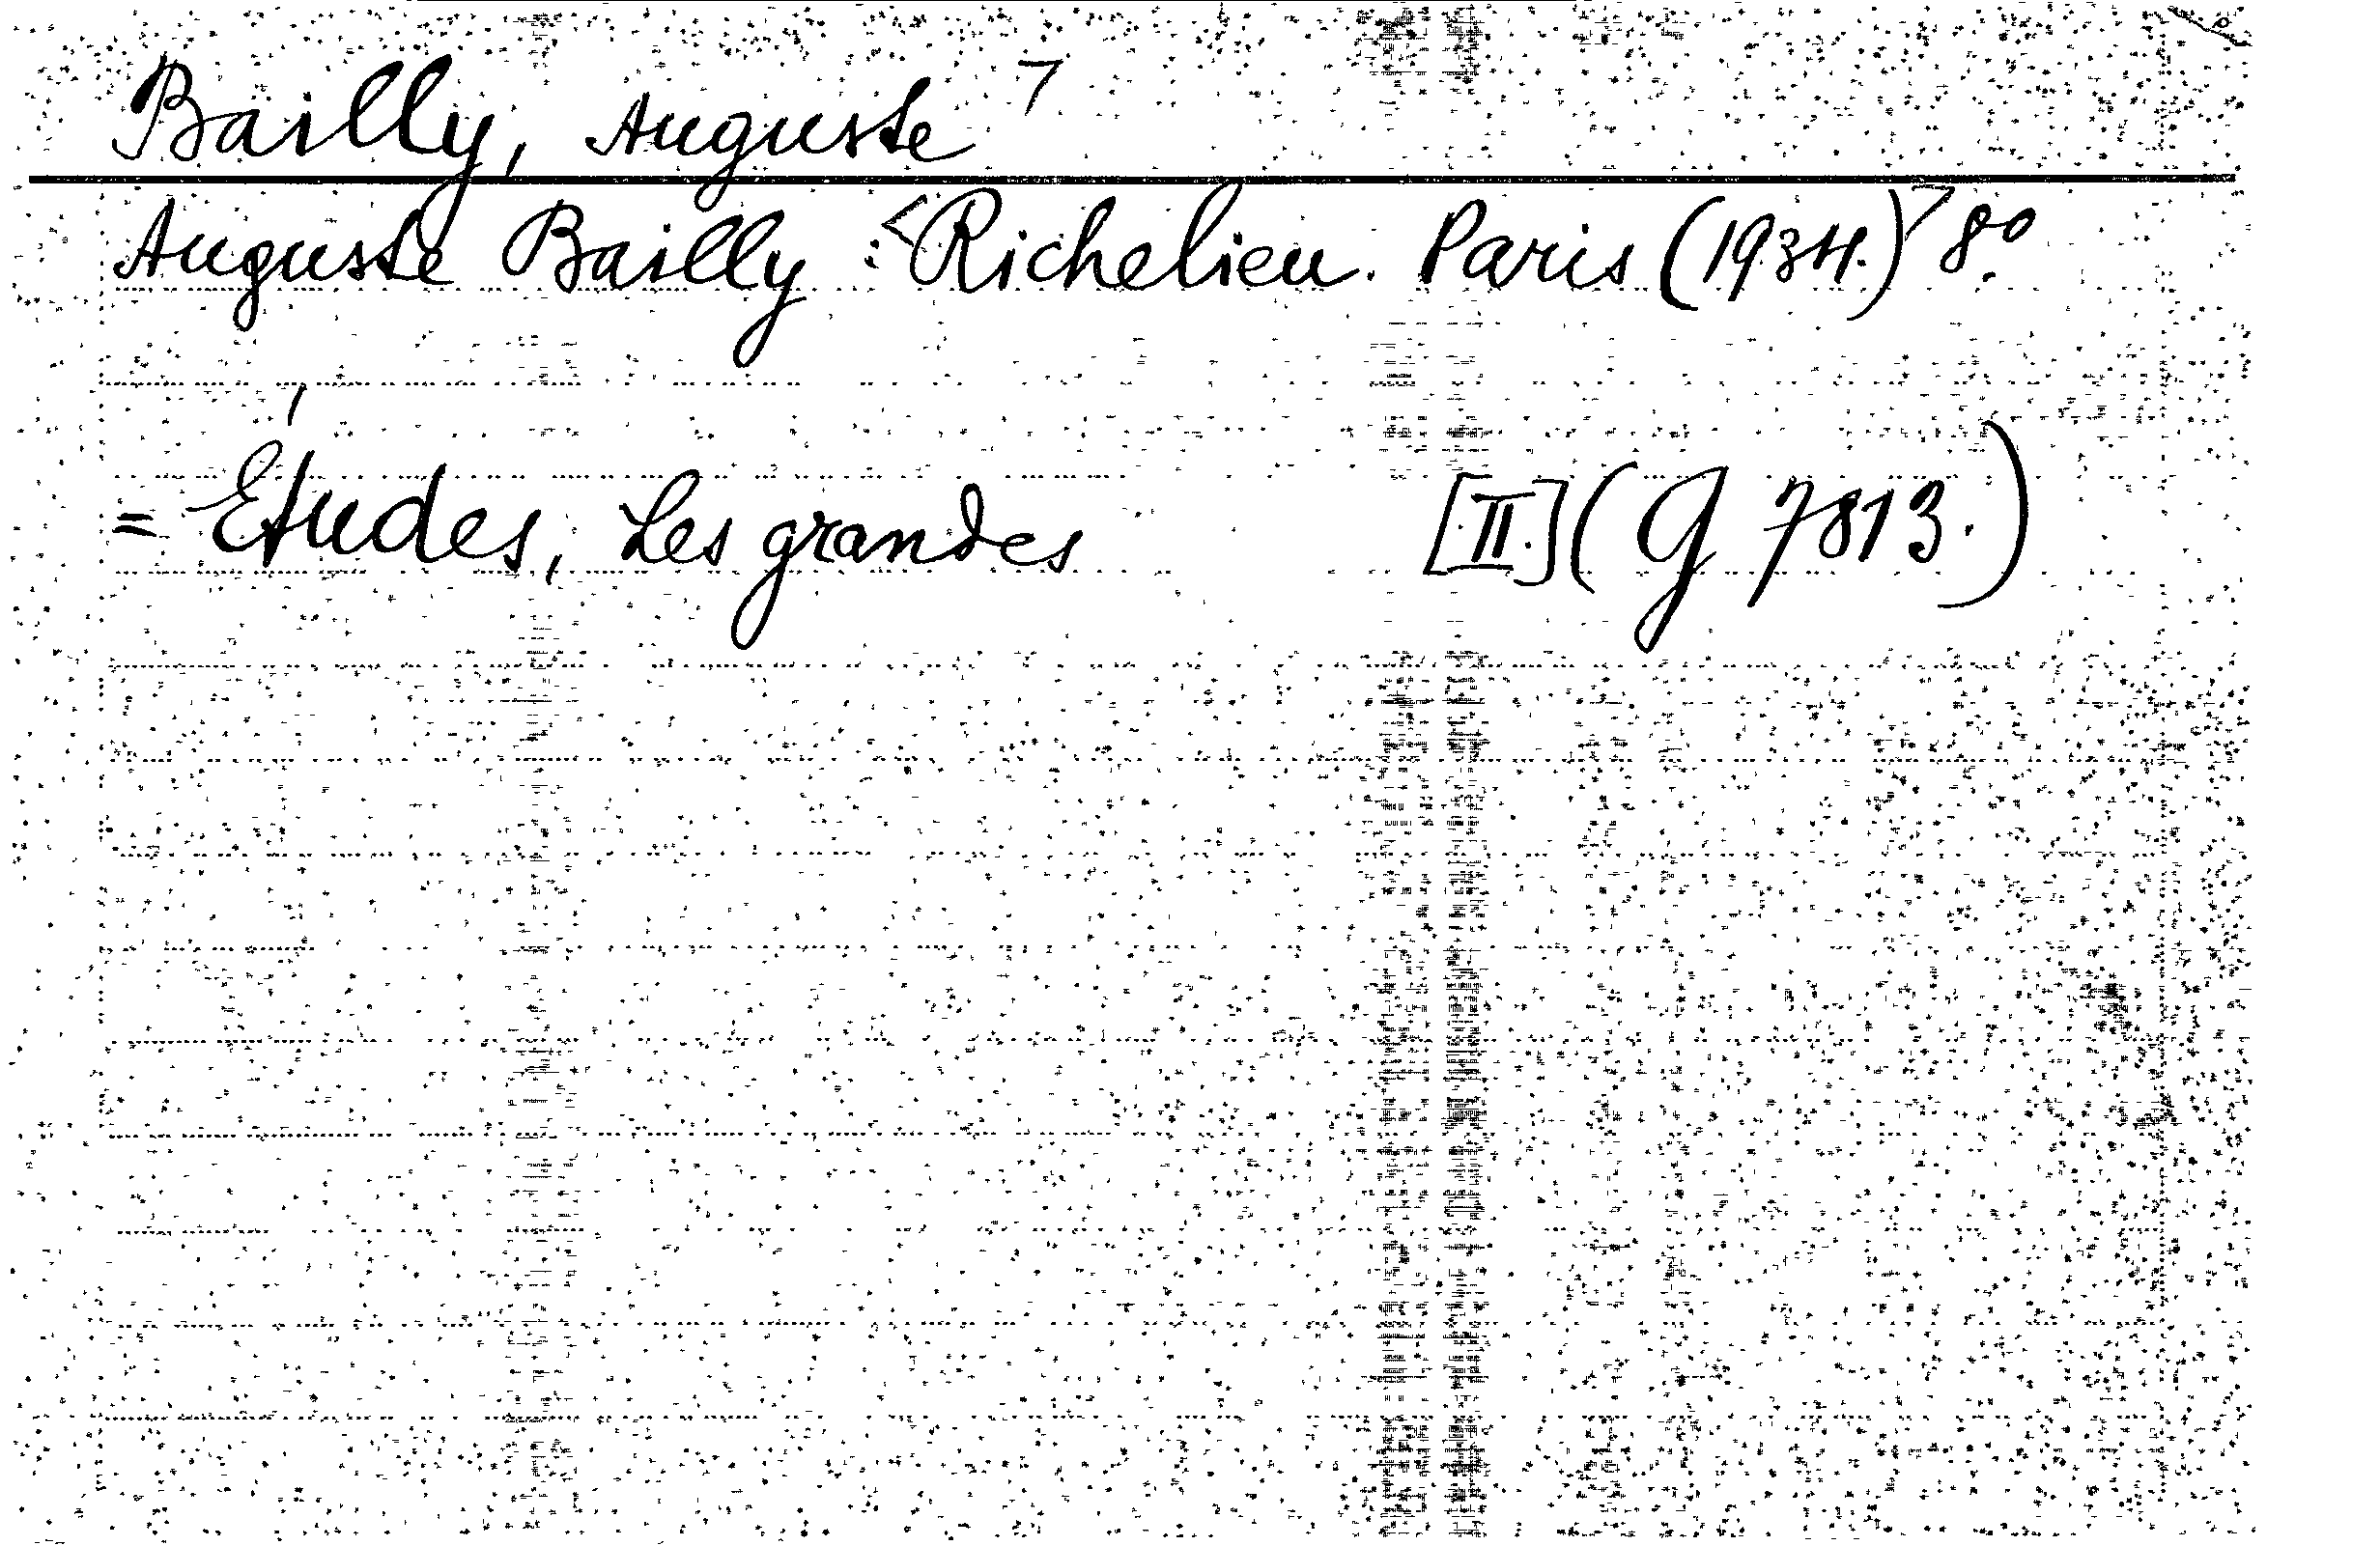 Bailly, Auguste ¬
Auguste Bailly : <Richelieu. Paris (1934.)¬ 8°.
= Études, Les grandes [II.] (G 7813.)